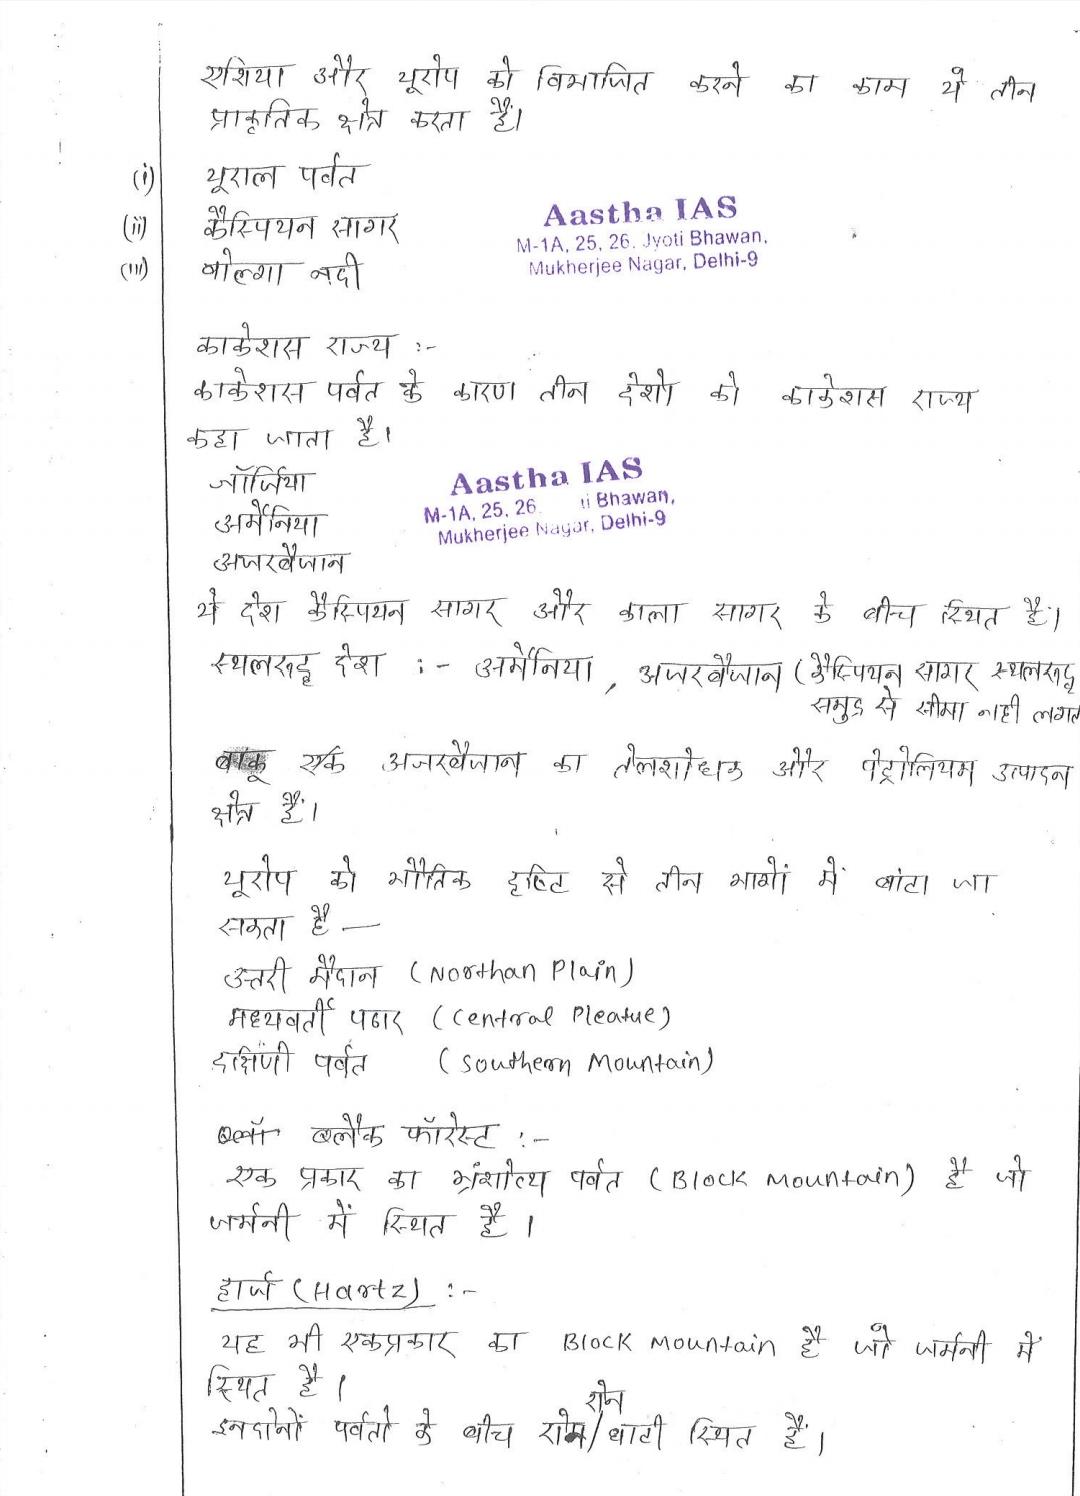 एशिया और यूरोप को विभाजित करने का काम ये तीन
प्राकृतिक क्षेत्र करता है।
(i) यूराल पर्वत
(ii) कैस्पियन सागर
(iii) वोल्गा नदी
Aastha IAS
M-1A, 25, 26. Jyoti Bhawan,
Mukherjee Nagar, Delhi-9
काकेशस राज्य :-
काकेशस पर्वत के कारण तीन देशो को काकेशस राज्य
कहा जाता है।
जॉर्जिया
अर्मेनिया
अजरबैजान
Aastha IAS
M-1A, 25, 26. ti Bhawan,
Mukherjee Nagar, Delhi-9
ये देश कैस्पियन सागर और काला सागर के बीच स्थित है।
स्थलरूद्ध देश :- अर्मेनिया, अजरबैजान (कैस्पियन सागर स्थलरूद्ध
समुद्र से सीमा नही लगत
बाकू एक अजरबैजान का तेलशोधक और पेट्रोलियम उत्पादन
क्षेत्र हैं।
यूरोप को भौतिक दृष्टि से तीन भागों में बांटा जा
सकता है —
उत्तरी मैदान (Northan Plain)
मध्यवर्ती पठार (Central Pleatue)
दक्षिणी पर्वत (Southern Mountain)
ब्लैक फॉरेस्ट :-
एक प्रकार का भ्रंशोत्थ पर्वत (Block Mountain) है जो
जर्मनी में स्थित है।
हार्ज (Hartz) :-
यह भी एकप्रकार का Block Mountain है जो जर्मनी में
स्थित है।
रोन
इनदोनों पर्वतो के बीच / घाटी स्थित हैं।